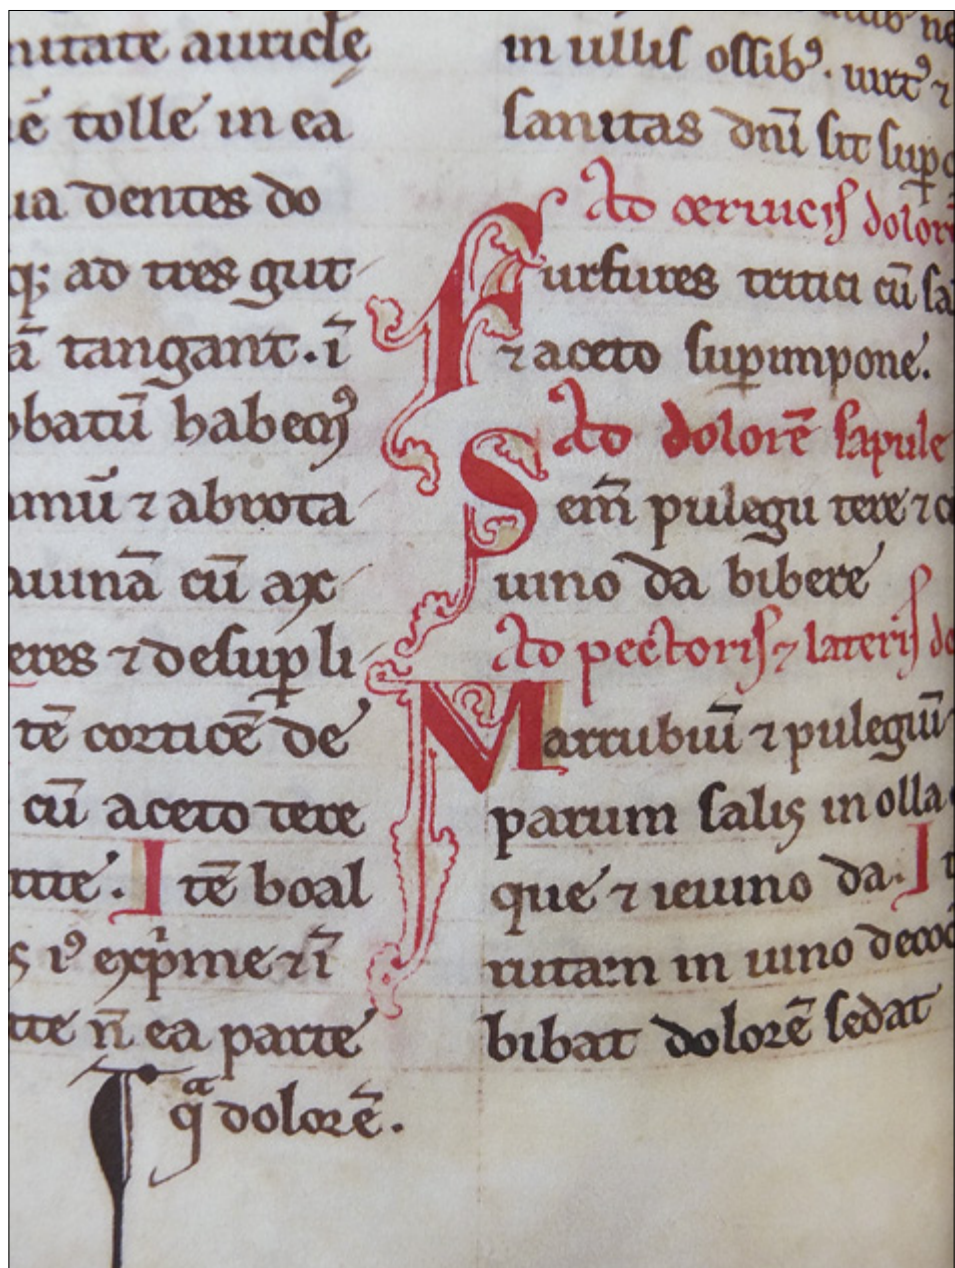 nitate auricle
tolle in ea
dentes do
ad tres gut
tangant. ī
batū habeoꝰ
mū ⁊ abrota
auunā cū ax
eres ⁊ desuꝑ li
tē corticē de
cū aceto tere
Itē boal
iꝰ exp̄me ⁊ ī
n̄ ea parte
qᵃ dolorē.
in ullis ossibꝰ. uirtꝰ ⁊
sanitas dn̄i sit suꝑ
Ad ceruicis dolor
Furfures tritici cū sa
⁊ aceto suꝑimpone.
Ad dolorē sapule
Sem̄ pulegii tere ⁊
uino da bibere
Ad pectoris ⁊ lateris do
Marrubiū ⁊ pulegiū
parum salis in olla
que ⁊ ieiuno da. I
rutam in uino decoc
bibat dolorē sedat